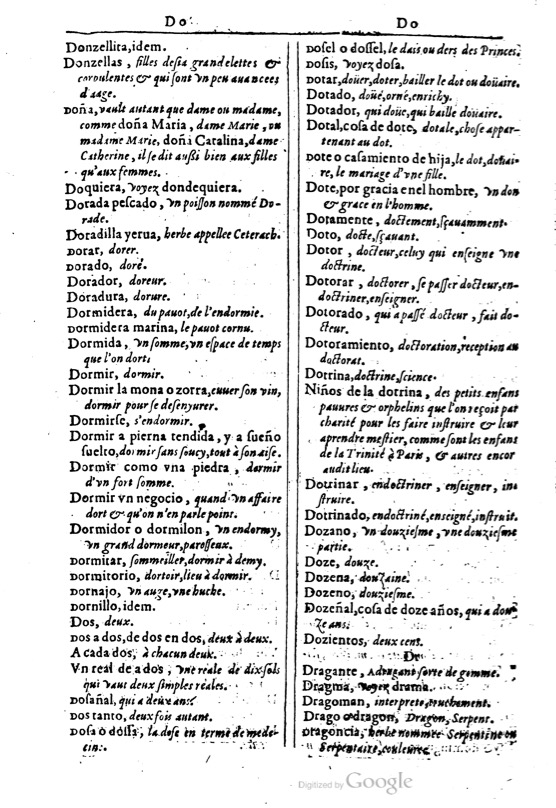 Do
Donzellita, idem.
Donzellas, filles desia grandelettes &
corpulentes & qui sont vn peu auancees
d'aage.
Doña, vault autant que dame ou madame,
comme doña Maria, dame Marie, ou
madame Marie, doña Catalina, dame
Catherine, il se dit aussi bien aux filles
qu'aux femmes.
Doquiera, voyez dondequiera.
Dorada pescado, vn poisson nommé Do-
rade.
Doradilla yerua, herbe appellee Ceterach.
Dorar, dorer.
Dorado, doré.
Dorador, doreur.
Doradura, dorure.
Dormidera, du pauot, de l'endormie.
Dormidera marina, le pauot cornu.
Dormida, vn somme, vn espace de temps
que l'on dort.
Dormir, dormir.
Dormir la mona o zorra, cuuer son vin,
dormir pour se desenyurer.
Dormirse, s'endormir.
Dormir a pierna tendida, y a sueño
suelto, dormir sans soucy, tout à son aise.
Dormir como vna piedra, dormir
d'vn fort somme.
Dormir vn negocio, quand vn affaire
dort & qu'on n'en parle point.
Dormidor o dormilon, vn endormy,
vn grand dormeur, paresseux.
Dormitar, sommeiller, dormir à demy.
Dormitorio, dortoir, lieu à dormir.
Dornajo, vn auge, vne huche.
Dornillo, idem.
Dos, deux.
Dos a dos, de dos en dos, deux à deux.
A cada dos, à chacun deux.
Vn real de a dos, vne reale de dix sols
qui vaut deux simples reales.
Dosañal, qui a deux ans.
Dos tanto, deux fois autant.
Dosa o dossa, la dose en terme de mede-
cin.
Do
Dosel o dossel, le dais ou ders des Princes.
Dosis, voyez dosa.
Dotar, doüer, doter, bailler le dot ou doüaire.
Dotado, doüé, orné, enrichy.
Dotador, qui doüe, qui baille doüaire.
Dotal, cosa de dote, dotale, chose appar-
tenant au dot.
Dote o casamiento de hija, le dot, doüai-
re, le mariage d'vne fille.
Dote, por gracia en el hombre, vn don
& grace en l'homme.
Dotamente, doctement, sçauamment.
Doto, docte, sçauant.
Dotor, docteur, celuy qui enseigne vne
doctrine.
Dotorar, doctorer, se passer docteur, en-
doctriner, enseigner.
Dotorado, qui a passé docteur, fait do-
cteur.
Dotoramiento, doctoration, reception au
doctorat.
Dotrina, doctrine, science.
Niños de la dotrina, des petits enfans
pauures & orphelins que l'on reçoit par
charité pour les faire instruire & leur
aprendre mestier, comme sont les enfans
de la Trinité à Paris, & autres encor
audit lieu.
Dotrinar, endoctriner, enseigner, in-
struire.
Dotrinado, endoctriné, enseigné, instruit.
Dozano, vn douziesme, vne douziesme
partie.
Doze, douze.
Dozena, douzaine.
Dozeno, douziesme.
Dozeñal, cosa de doze años, qui a dou-
ze ans.
Dozientos, deux cens.
Dr
Dragante, Adragant sorte de gomme.
Dragma, voyez drama.
Dragoman, interprete, truchement.
Drago o dragon, Dragon, Serpent.
Dragoncia, herbe nommée Serpentine ou
Serpentaire, couleuree.
Digitized by Google